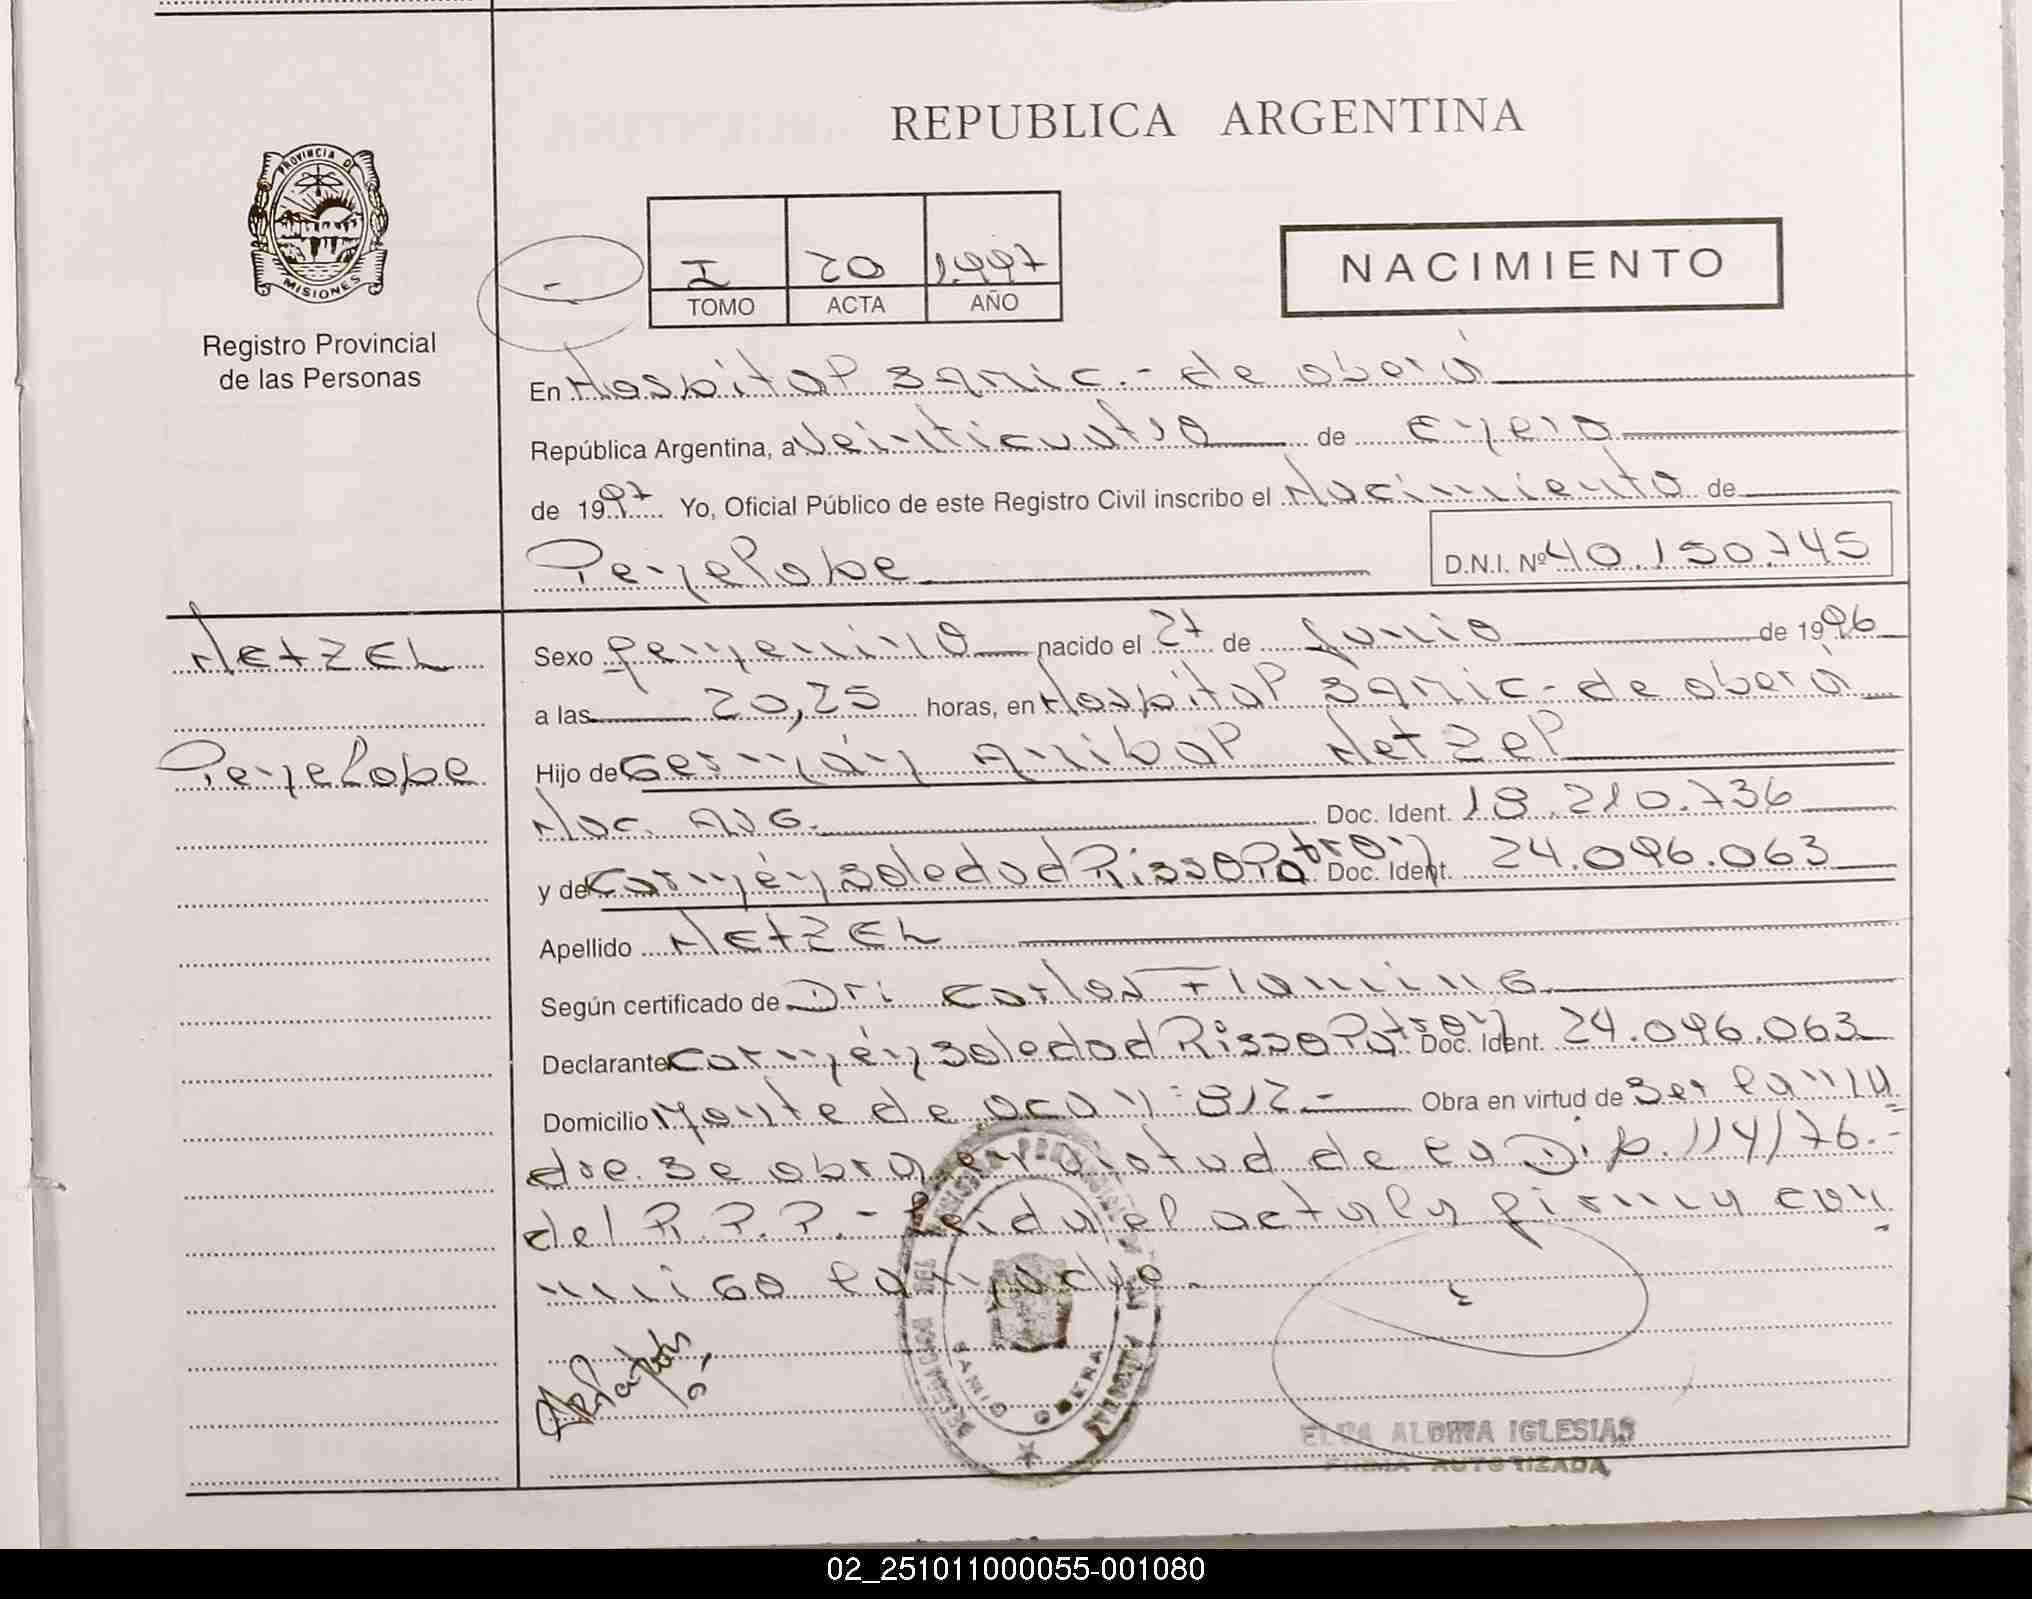 REPUBLICA ARGENTINA
PROVINCIA DE MISIONES
Registro Provincial
de las Personas
I 20 1997
TOMO ACTA AÑO
NACIMIENTO
En Hospital Samic.- de oberá
República Argentina, a Veinticuatro de Enero
de 1997 Yo, Oficial Público de este Registro Civil inscribo el Nacimiento de
Penelope D.N.I. Nº 40.150.745
NETZEL
Penelope
Sexo femenino nacido el 27 de Junio de 1996
a las 20,25 horas, en Hospital Samic.- de oberá
Hijo de Germán Anibal Netzel
Nac. ARG. Doc. Ident. 18.210.736
y de Carmén Soledad Risso Patron Doc. Ident. 24.096.063
Apellido NETZEL
Según certificado de Dr: Carlos Flaming
Declarante Carmén Soledad Risso Patron Doc. Ident. 24.096.063
Domicilio Monte de oca n: 812.- Obra en virtud de Ser la ma
dre. Se obra en virtud de la Dip. 114/76.-
del R.P.P.- Leida el acta la firma con
migo la madre.
SAMIC OBERA
ELVA ALBINA IGLESIAS
FIRMA AUTORIZADA
02_251011000055-001080